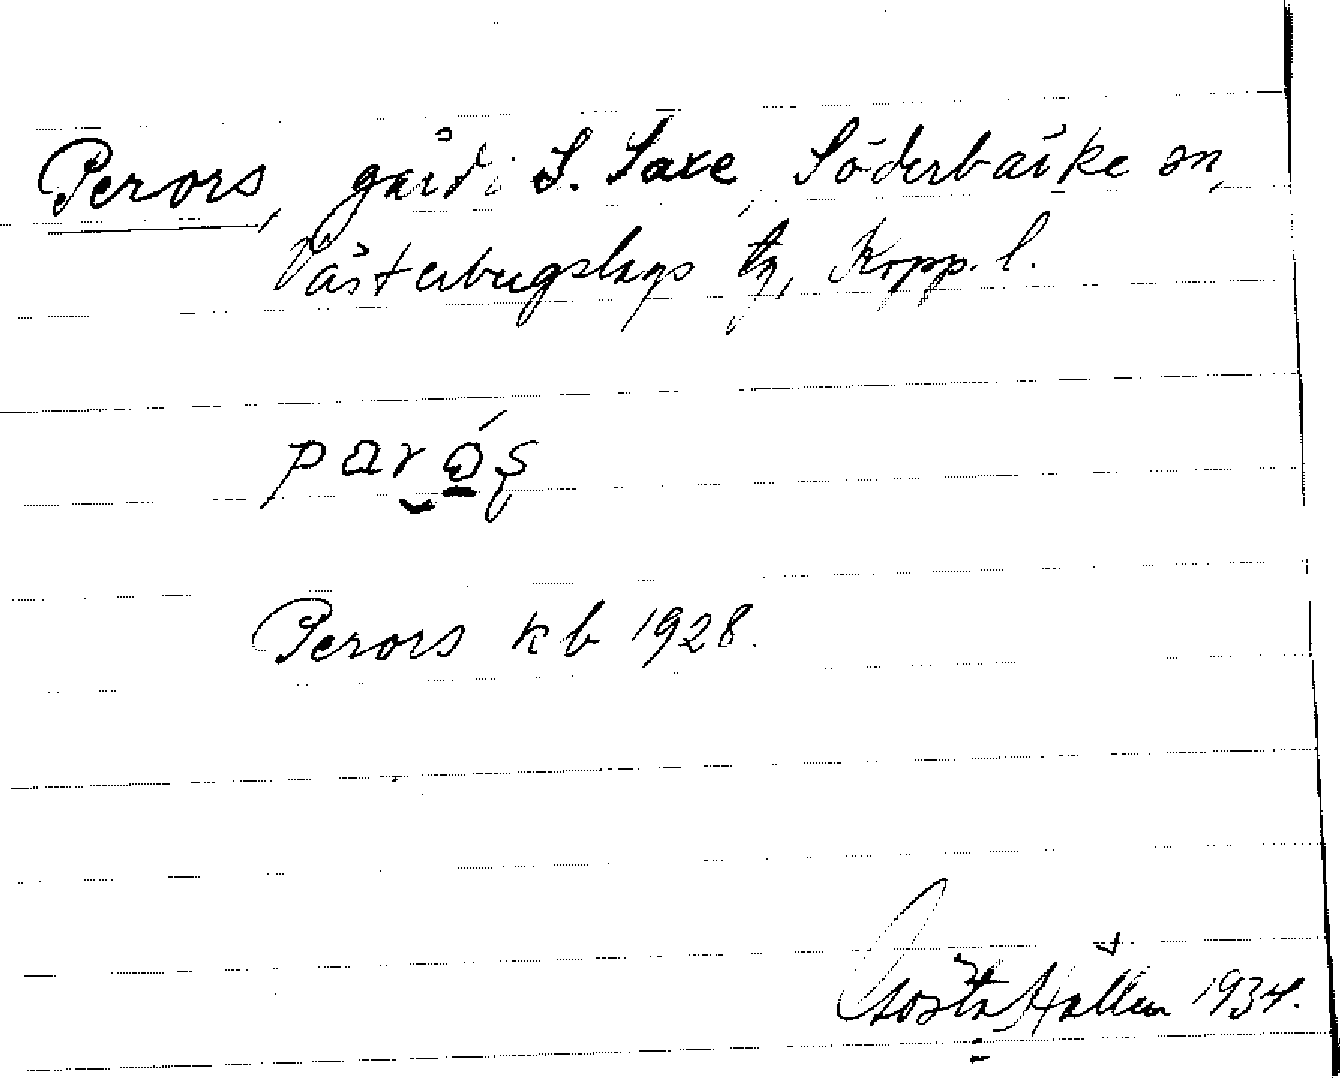 Perors, gård i S. Saxe, Söderbärke sn,
Västerbergslags tg, Kopp. l.
parås
Perors kb 1928.
Gösta Hållen 1934.